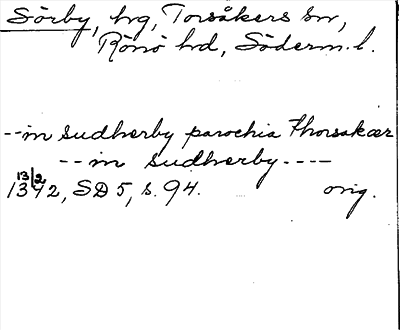 Sörby, hg, Torsåkers sn,
Rönö hd, Söderm. l.
--in sudherby parochia thorsakær
--in sudherby----
13/2 1342, SD 5, s. 94. orig.